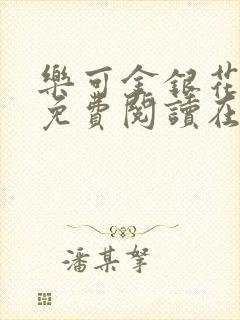 樂可金銀花
免費閱讀在
潘某拏